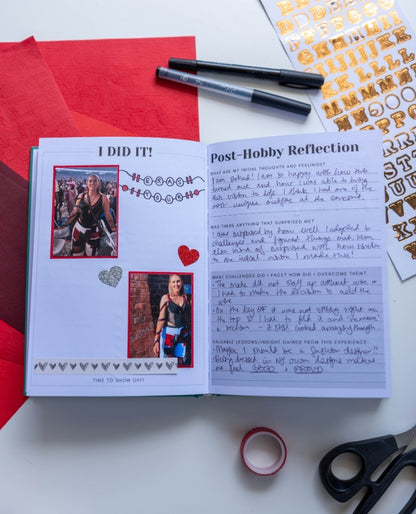 I DID IT!
ERAS
TOUR
TIME TO SHOW OFF!
Post-Hobby Reflection
WHAT ARE MY INITIAL THOUGHTS AND FEELINGS?
I am stoked! I am so happy with how this
turned out and how I was able to bring
this vision to life. I had one of the
most unique outfits at the concert.
WAS THERE ANYTHING THAT SURPRISED ME?
I was surprised by how well I adapted to
challenges and figured things out. I am
also kind of surprised with how similar
to the initial vision I made this!
WHAT CHALLENGES DID I FACE? HOW DID I OVERCOME THEM?
- The snake did not stay up around wire so
I had to make the decision to add the
wire
- On the day of it was not sitting right on
the top so I had to fold it and
a section - it still looked amazing though
VALUABLE LESSONS/INSIGHT GAINED FROM THIS EXPERIENCE:
- Maybe I should be a fashion designer
- Being dressed in my own designs makes
me feel GOOD + PROUD